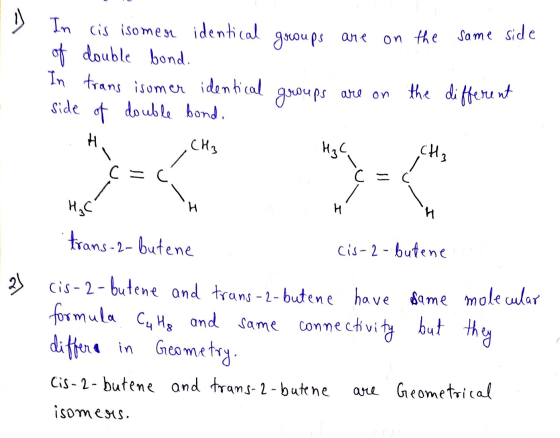 1) In cis isomer identical groups are on the same side
of double bond.
In trans isomer identical groups are on the different
side of double bond.
H CH3
C = C
H3C H
trans-2-butene
H3C CH3
C = C
H H
cis-2-butene
2) cis-2-butene and trans-2-butene have same molecular
formula C4H8 and same connectivity but they
differe in Geometry.
Cis-2-butene and trans-2-butene are Geometrical
isomers.